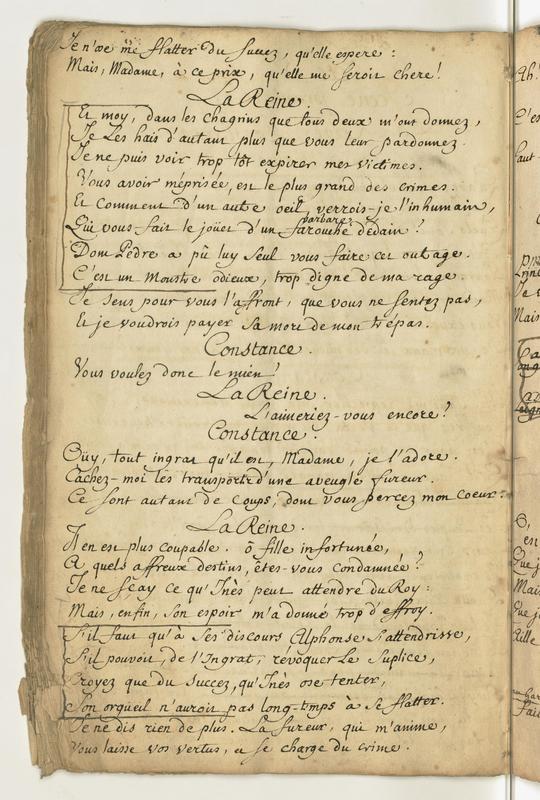 Je n'ose me flatter du succez, qu'elle espere :
Mais, Madame, à ce prix, qu'elle me seroit chere !
La Reine.
Et moy, dans les chagrins que tous deux m'ont donnez,
Je Les hais d'autant plus que vous leur pardonnez.
Je ne puis voir trop tôt expirer mes victimes.
Vous avoir méprisée, est le plus grand des crimes.
Et comment d'un autre oeil, verrois-je l'inhumain,
barbare
Qui vous fait le jouët d'un farouche dédain ?
Dom Pédre a pû luy seul vous faire cet outrage.
C'est un Monstre odieux, trop digne de ma rage.
Je sens pour vous l'affront, que vous ne sentez pas,
Et je voudrois payer sa mort de mon trépas.
Constance.
Vous voulez donc le mien !
La Reine.
L'aimeriez-vous encore ?
Constance.
Oüy, tout ingrat qu'il est, Madame, je l'adore.
Cachez-moi les transports d'une aveugle fureur.
Ce sont autant de coups, dont vous percez mon coeur.
La Reine.
Il en est plus coupable. ô fille infortunée,
A quels affreux destins, êtes-vous condamnée ?
Je ne sçay ce qu'Inès peut attendre du Roy :
Mais, enfin, son espoir m'a donné trop d'effroy.
S'il faut qu'à ses discours Alphonse s'attendrisse,
S'il pouvoit, de l'Ingrat, révoquer Le suplice,
Croyez que du succez, qu'Inès ose tenter,
Son orgüeil n'auroit pas long-tmps à se flatter.
Je ne dis rien de plus. La fureur, qui m'anime,
Vous laisse vos vertus, et se charge du crime.